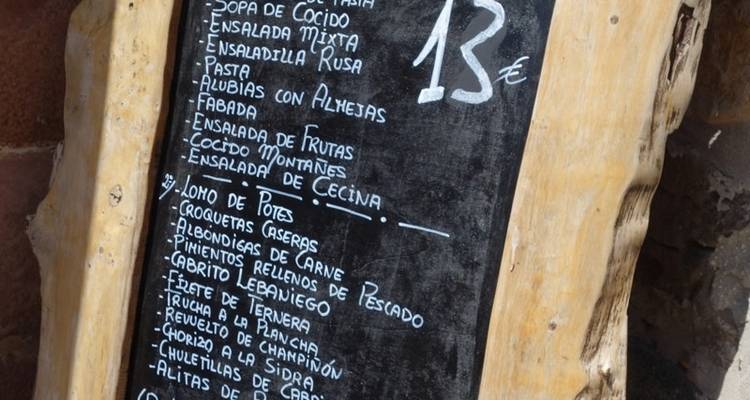 PASTA
-SOPA DE COCIDO
-ENSALADA MIXTA
-ENSALADILLA RUSA
-PASTA
-ALUBIAS CON ALMEJAS
-FABADA
-ENSALADA DE FRUTAS
-COCIDO MONTAÑES
-ENSALADA DE CECINA
13€
2º/-LOMO DE POTES
-CROQUETAS CASERAS
-ALBONDIGAS DE CARNE
-PIMIENTOS RELLENOS DE PESCADO
-CABRITO LEBANIEGO
-FILETE DE TERNERA
-TRUCHA A LA PLANCHA
-REVUELTO DE CHAMPIÑÓN
-CHORIZO A LA SIDRA
-CHULETILLAS DE
-ALITAS DE